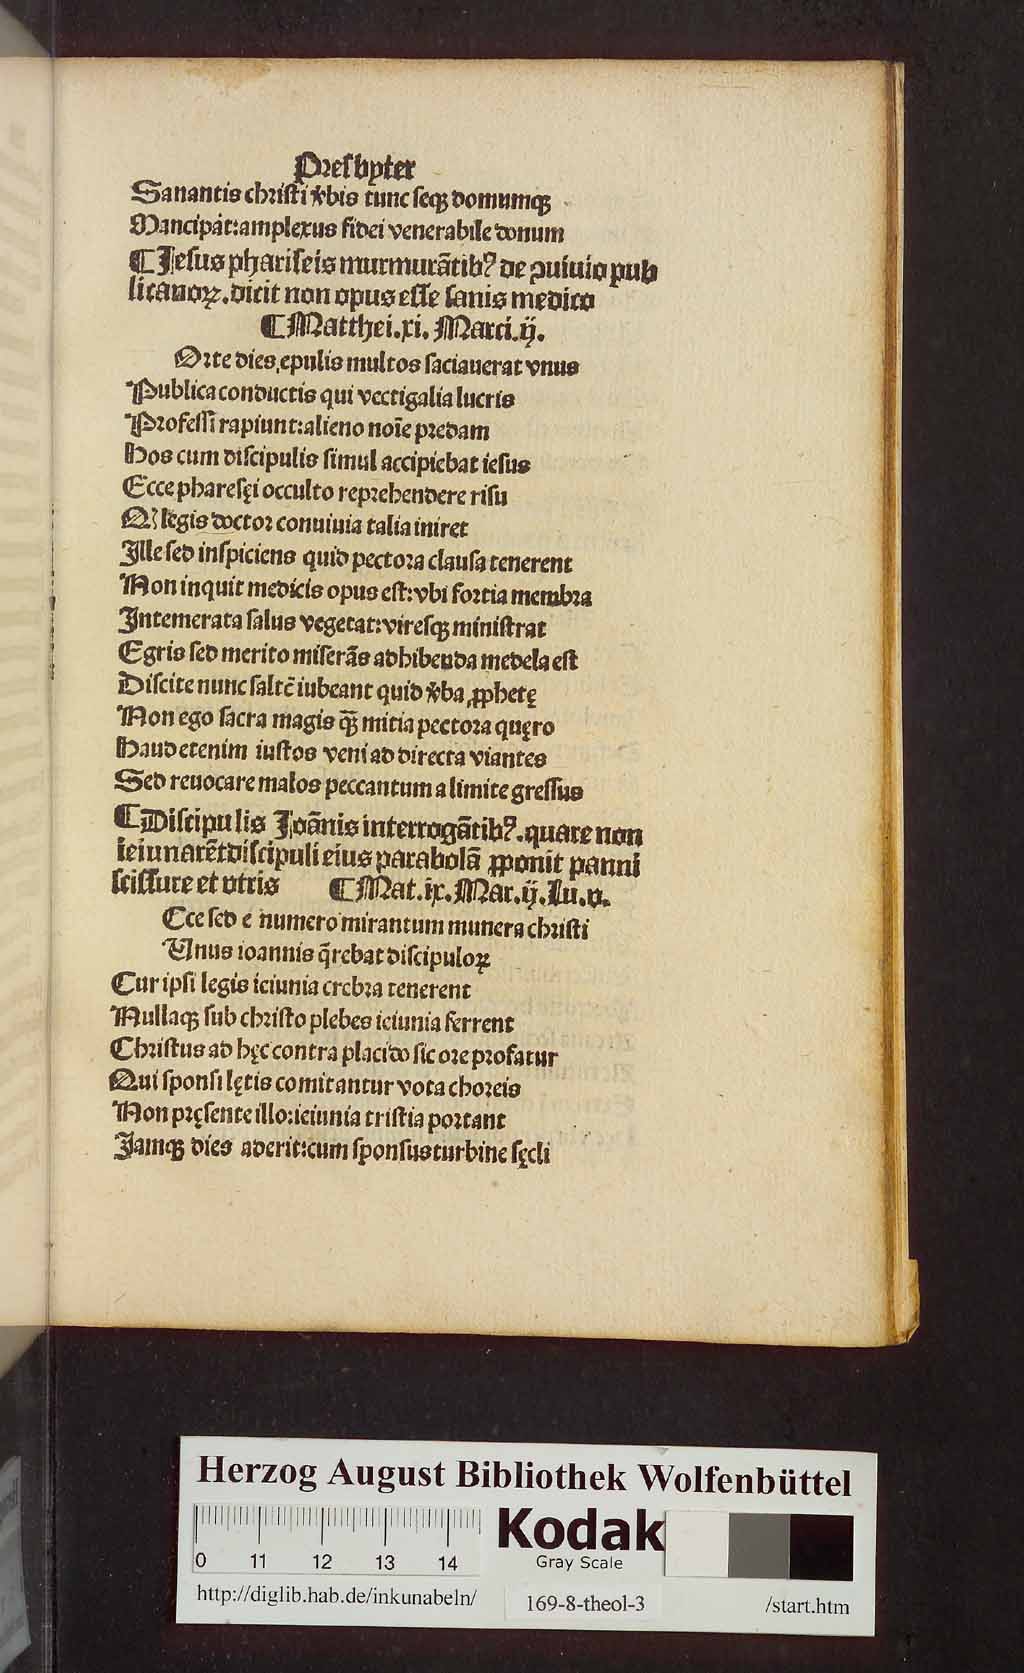 Presbyter
Sanantis christi v̾bis tunc seqꝫ domumqꝫ
Mancipat:amplexus fidei venerabile donum
¶ Jesus phariseis murmurãtibꝰ de ↄuiuio pub
licanoꝝ.dicit non opus esse sanis medico
¶ Matthei.xi. Marci.ij.
Orte dies,epulis multos saciauerat vnus
Publica conductis qui vectigalia lucris
Professi rapiunt:alieno noĩe predam
Hos cum discipulis simul accipiebat iesus
Ecce pharesęi occulto reprehendere risu
Qꝫ legis doctor conuiuia talia iniret
Jlle sed inspiciens quid pectora clausa tenerent
Non inquit medicis opus est:vbi fortia membra
Jntemerata salus vegetat:viresqꝫ ministrat
Egris sed merito miserãs adhibenda medela est
Discite nunc saltẽ iubeant quid v̾ba ꝓphetę
Non ego sacra magis qꝫ̃ mitia pectora quęro
Haud etenim iustos veni ad directa viantes
Sed reuocare malos peccantum a limite gressus
¶ Discipulis Joãnis interrogãtibꝰ.quare non
ieiunarẽt discipuli eius parabolã ꝓponit panni
scissure et vtris ¶ Mat.ix.Mar.ij.Lu.v.
Cce sed e numero mirantum munera christi
Unus ioannis q̃rebat discipuloꝝ
Cur ipsi legis ieiunia crebra tenerent
Nullaqꝫ sub christo plebes ieiunia ferrent
Christus ad hęc contra placido sic ore profatur
Qui sponsi lętis comitantur vota choreis
Non pręsente illo:ieiunia tristia portant
Jamqꝫ dies aderit:cum sponsus turbine sęcli
Herzog August Bibliothek Wolfenbüttel
Kodak
Gray Scale
0 11 12 13 14
http://diglib.hab.de/inkunabeln/ 169-8-theol-3 /start.htm